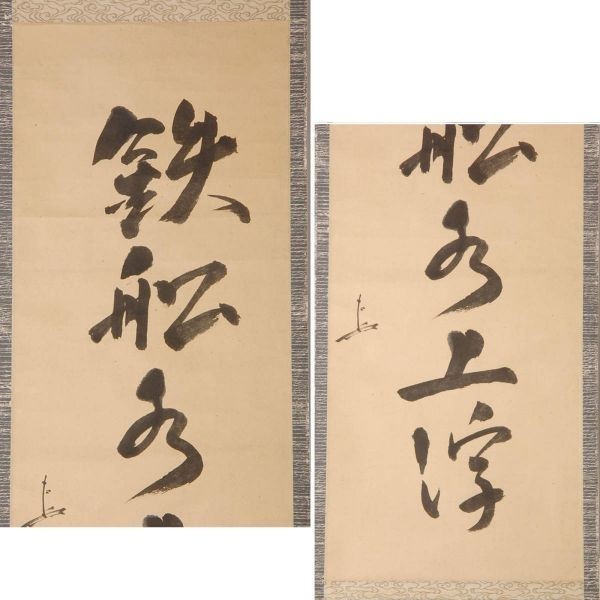 鉄船水
船水上浮